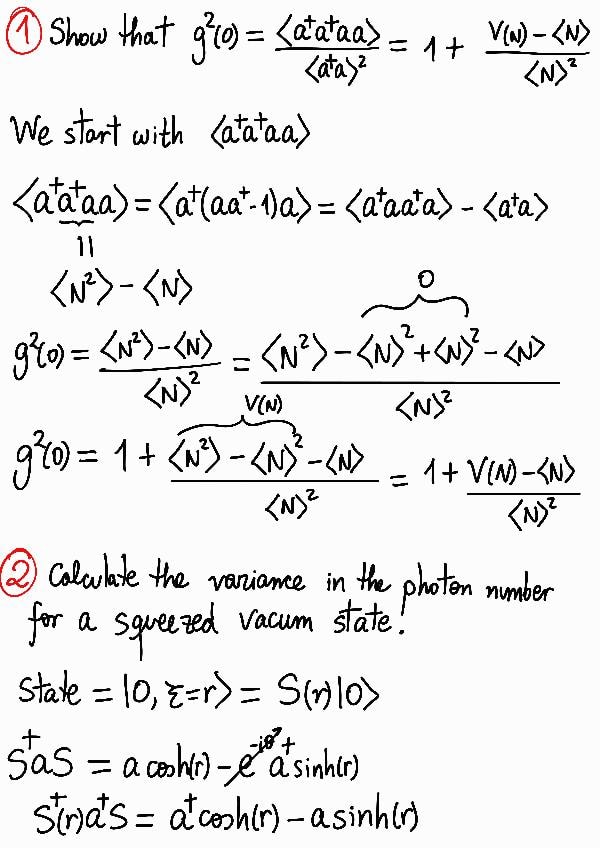 ① Show that g²(0) = ⟨a⁺a⁺aa⟩/⟨a⁺a⟩² = 1 + (V(N) - ⟨N⟩)/⟨N⟩²
We start with ⟨a⁺a⁺aa⟩
⟨a⁺a⁺aa⟩ = ⟨a⁺(aa⁺-1)a⟩ = ⟨a⁺aa⁺a⟩ - ⟨a⁺a⟩
||
⟨N²⟩ - ⟨N⟩
0
g²(0) = (⟨N²⟩-⟨N⟩)/⟨N⟩² = (⟨N²⟩ - ⟨N⟩² + ⟨N⟩² - ⟨N⟩)/⟨N⟩²
V(N)
g²(0) = 1 + (⟨N²⟩ - ⟨N⟩² - ⟨N⟩)/⟨N⟩² = 1 + (V(N) - ⟨N⟩)/⟨N⟩²
② Calculate the variance in the photon number
for a squeezed vacum state.
State = |0, ξ=r⟩ = S(r)|0⟩
S⁺aS = a cosh(r) - e^(-iθ) a⁺ sinh(r)
S⁺(r)a⁺S = a⁺cosh(r) - a sinh(r)